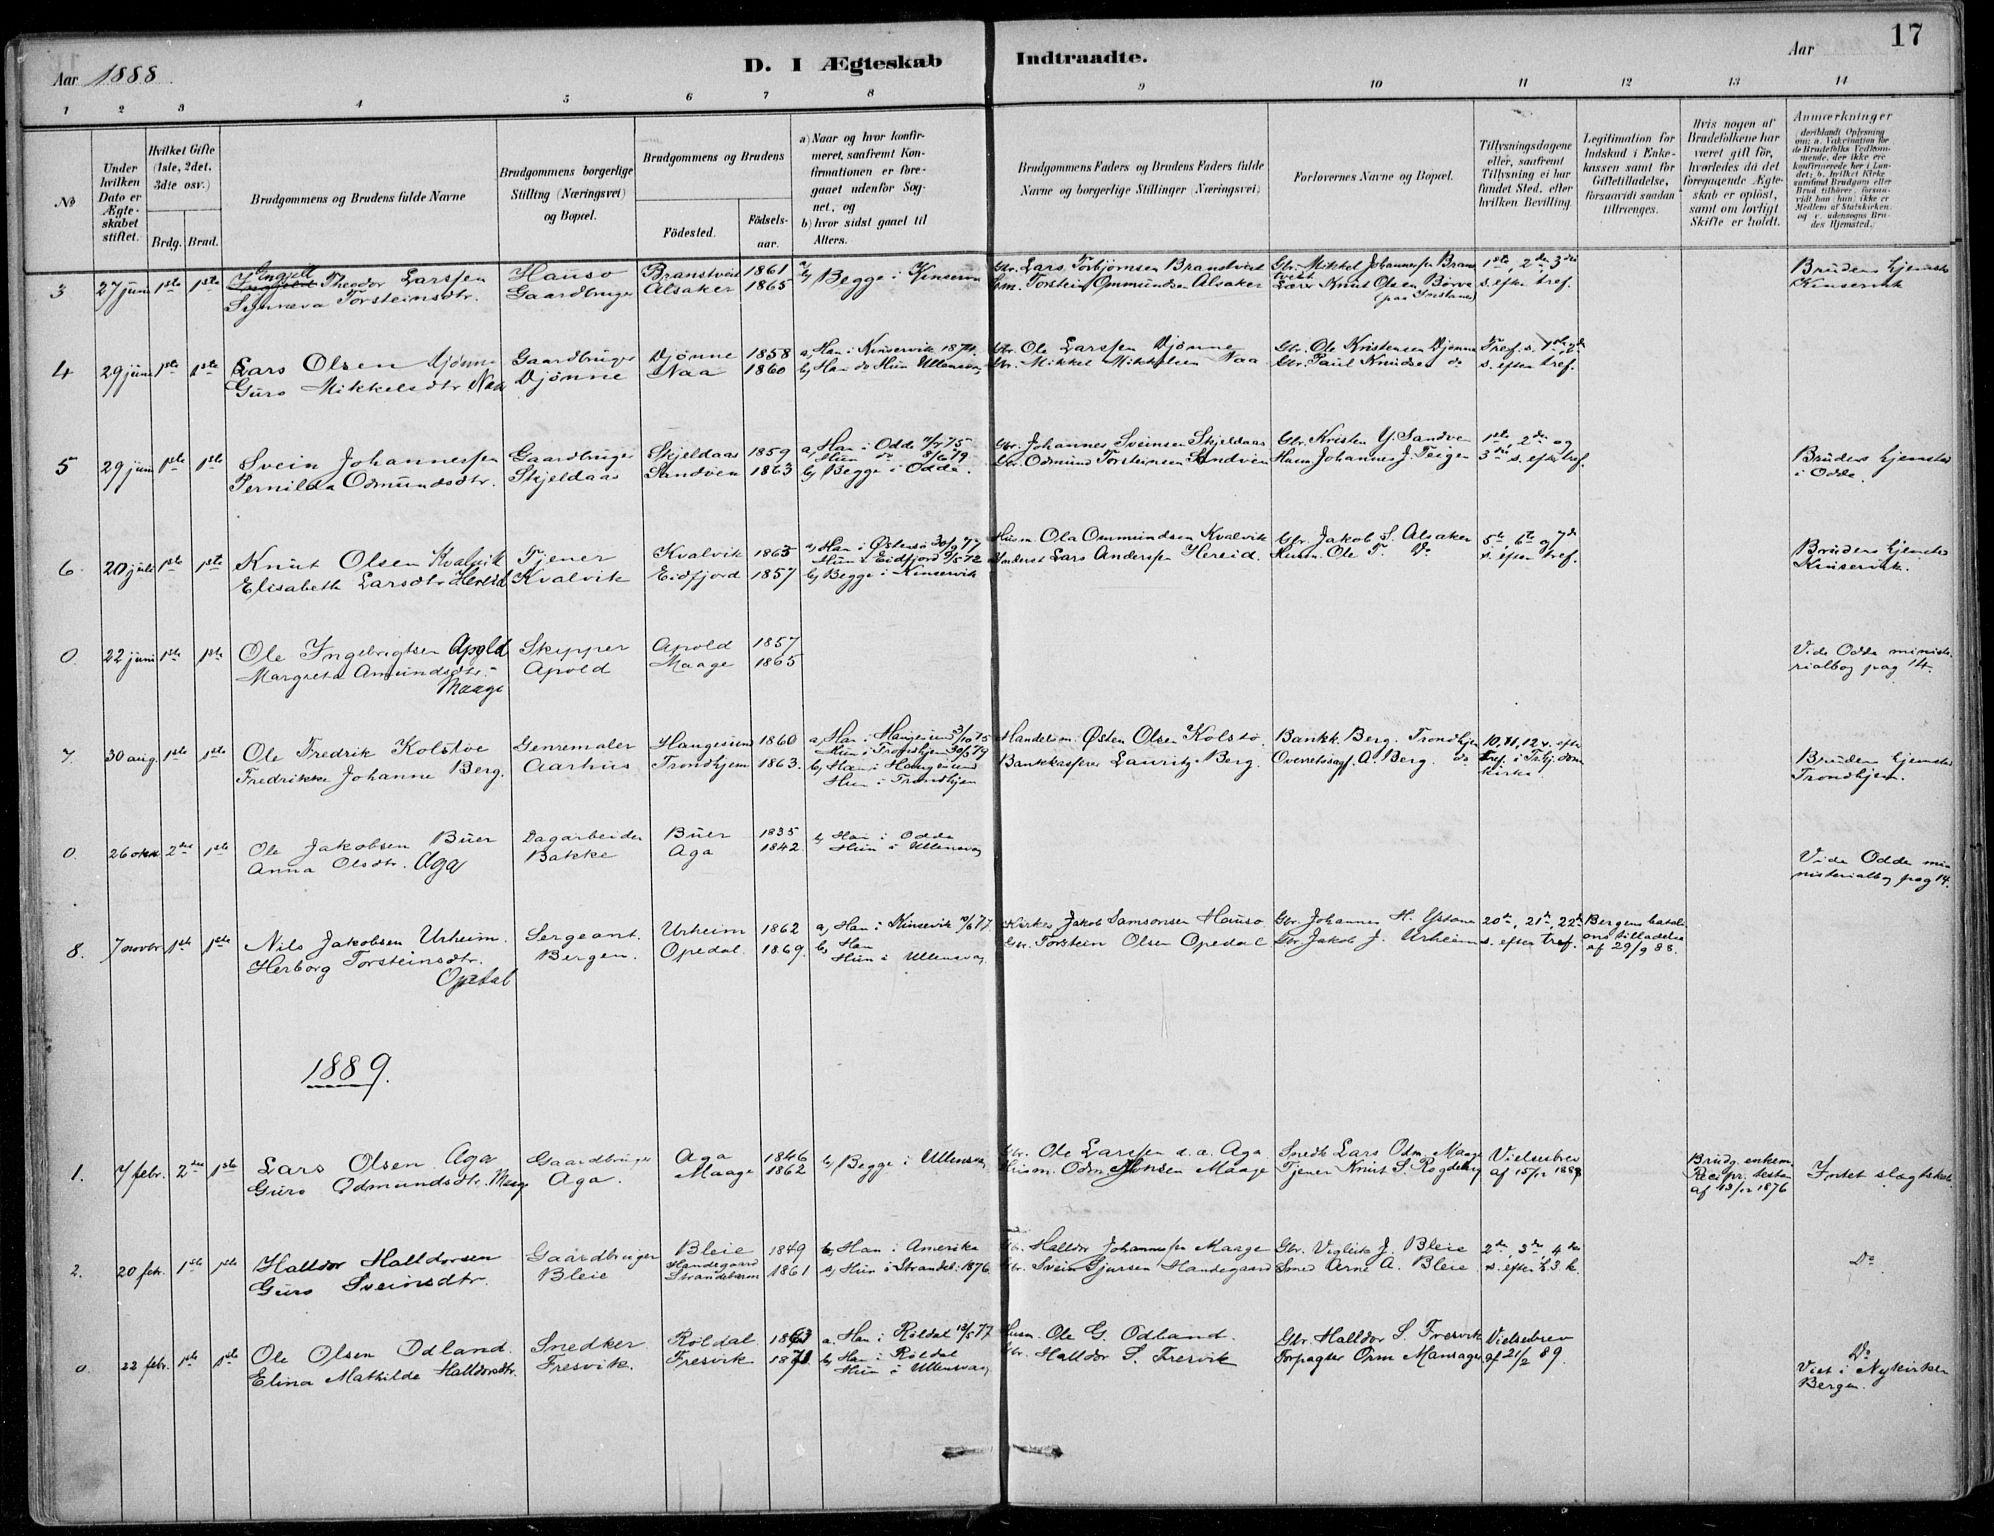 17
Aar 1888
D. I Ægteskab Indtraadte.
Aar
1 2 3 4 5 6 7 8 9 10 11 12 13 14
No
Under hvilken Dato er Ægteskabet stiftet.
Hvilket Gifte (1ste, 2det, 3die osv.)
Brdg. Brud.
Brudgommens og Brudens fulde Navne
Brudgommens borgerlige Stilling (Næringsvei) og Bopæl.
Brudgommens og Brudens
Fødested. Fødselsaar.
a) Naar og hvor konfirmeret, saafremt Konfirmationen er foregaaet udenfor Sognet, og
b) hvor sidst gaaet til Alters.
Brudgommens Faders og Brudens Faders fulde Navne og borgerlige Stillinger (Næringsvei)
Forlovernes Navne og Bopæl.
Tillysningsdagene eller, saafremt Tillysning ei har fundet Sted, efter hvilken Bevilling.
Legitimation for Indskud i Enkekassen samt for Giftetilladelse, forsaavidt saadan tiltrænges.
Hvis nogen af Brudefolkene har været gift før, hvorledes da det foregaaende Ægteskab er opløst, samt om lovligt Skifte er holdt.
Anmærkninger (deriblandt Oplysning om: a. Vakcination for de Brudefolks Vedkommende, der ikke ere konfirmerede her i Landet; b. hvilket Kirkesamfund Brudgom eller Brud tilhører, forsaavidt han (hun) ikke er Medlem af Statskirken, og c. udensogns Brudes Hjemsted.)
3 27 juni 1ste 1ste Ingjell Theodor Larssen Hauso Branstveit 1861 a, Gbr. Lars Torbjørnsen Brandtveit Gbr. Mikkel Johannessen Bran 1ste, 2de, 3die Brudens hjemsted
Synneva Torsteinsdtr. Gaardbruger Alsaker 1865 b, Begge i Kinservik Hm. Torstein Ommundsen Alsaker Lærer Knut Olsen Børve s. efter tref. Kinservik
4 29 juni 1ste 1ste Lars Olsen Djønne Gaardbruger Djønne 1858 a, Han i Kinservik 1874. Gbr. Ole Larssen Djønne Gbr. Ole Kristensen Djønne Tref. s. 1ste, 2de
Guro Mikkelsdtr Naa Djønne Naa 1860 b, Han do Hun Ullensvang Gbr. Mikkel Mikkelsen Naa Gbr. Paul Knudsen do s. efter tref.
5 29 juni 1ste 1ste Svein Johannessen Gaardbruger Skjeldaas 1859 a, Han i Odde 75 Gbr. Johannes Sveinsen Skjeldaas Gbr. Kristen Y. Sandven 1ste, 2de og
Pernilda Odmundsdtr. Skjeldaas Sandven 1863 Hun do 8/6 79 b, Begge i Odde. Gbr. Odmund Torsteinsen Sandven Husm Johannes J. Teigen 3die s. efter tref. Brudens hjemsted i Odde.
6. 20 juli 1ste 1ste Knut Olsen Kvalvik Tjener Kvalvik 1863 a, Han i Østensø 30/9 77 Husm Ola Ommundsen Kvalvik Gbr. Jakob S. Alsaker 5te, 6te og 7de
Elisabeth Larsdtr Hereid Kvalvik Eidfjord 1857 Hun i Eidfjord 72 b, Begge i Kinservik Lars Anderssen Hereid. Husm. Ole T. Do s. efter tref. Brudens hjemsted Kinservik.
0. 22 juni 1ste 1ste Ole Ingebrigtsen Apold Skipper Apold 1857 Vide Odde ministe-
Margreta Amundsdtr. Maage Apold Maage 1865 rialbog pag 14.
7. 30 aug. 1ste 1ste Ole Fredrik Kolstøe Genremaler Haugesund 1860 a, Han i Haugesund 3/10 75 Handelsm. Østen Olsen Kolstø. Bankk. Berg. Trondhjem 10, 11, 12 s. efter
Fredrikke Johanne Berg. Aarhus Trondhjem 1863. Hun i Trondhjem 79 Bankkasserer Lauritz Berg. Overretssagf. A. Berg. do Tref. i Trhj. domkirke
b, Han i Haugesund Hun i Trondhjem Brudens hjemsted Trondhjem.
0. 26 okt 2den 1ste Ole Jakobsen Buer Dagarbeider Buer 1835 b, Han i Odde
Anna Olsdtr. Aga Bakke Aga 1842 Hun i Ullensvang Vide Odde ministerialbog pag 14.
8. 7 novbr 1ste 1ste Nils Jakobsen Urheim. Sergeant. Urheim 1862 a, Han i Kinservik 77. Jakob Samsonsen Hauso Gbr. Johannes H. Ystanes 20de, 21de, 22de Bergens bataljons tilladelse af 29/9 88.
Herborg Torsteinsdtr. Opedal Bergen. Opedal. 1869. b, Han Hun i Ullensvang Gbr. Torstein Olsen Opedal Gbr Jakob J. Urheim s. efter tref.
1889.
1. 7 febr. 2den 1ste Lars Olsen Aga Gaardbruger Aga 1846 b, Begge i Ullensvang Gbr. Ole Larssen s.a. Aga Snedk Lars Odm. Maage Vielsesbrev Brudg. enkem. Intet slægtskab
Guro Odmundsdtr. Maage Aga. Maage 1862 Husm. Odm. Monsen Maage Tjener Knut S. Rogdeberg af 15/12 1888 af 13/12 1876
2. 20 febr. 1ste 1ste Halldor Halldorsen Gaardbruger Bleie 1849 b, Han i Amerika Gbr. Halldor Johannessen Maage Gbr. Viglik J. Bleie 2de, 3de, 4de Do
Guro Sveinsdtr. Bleie Handegaard Strandebarm 1861 a, Hun i Strandeb. 1876. Gbr. Svein Gjursen Handegaard Smed Arne A. Bleie s. efter h. 3 k.
0. 22 febr. 1ste 1ste Ole Olsen Odland. Snedker Røldal 1863 a. Han i Røldal 77 Husm. Ole G. Odland. Gbr. Halldor S. Fresvik Vielsesbrev Do
Elina Mathilde Halldorsdtr. Fresvik. Fresvik 1871 b, Han i Røldal Hun i Ullensvang Gbr. Halldor S. Fresvik Forpagter Orm Mansager af 21/2 89. Viet i Nykirken Bergen.